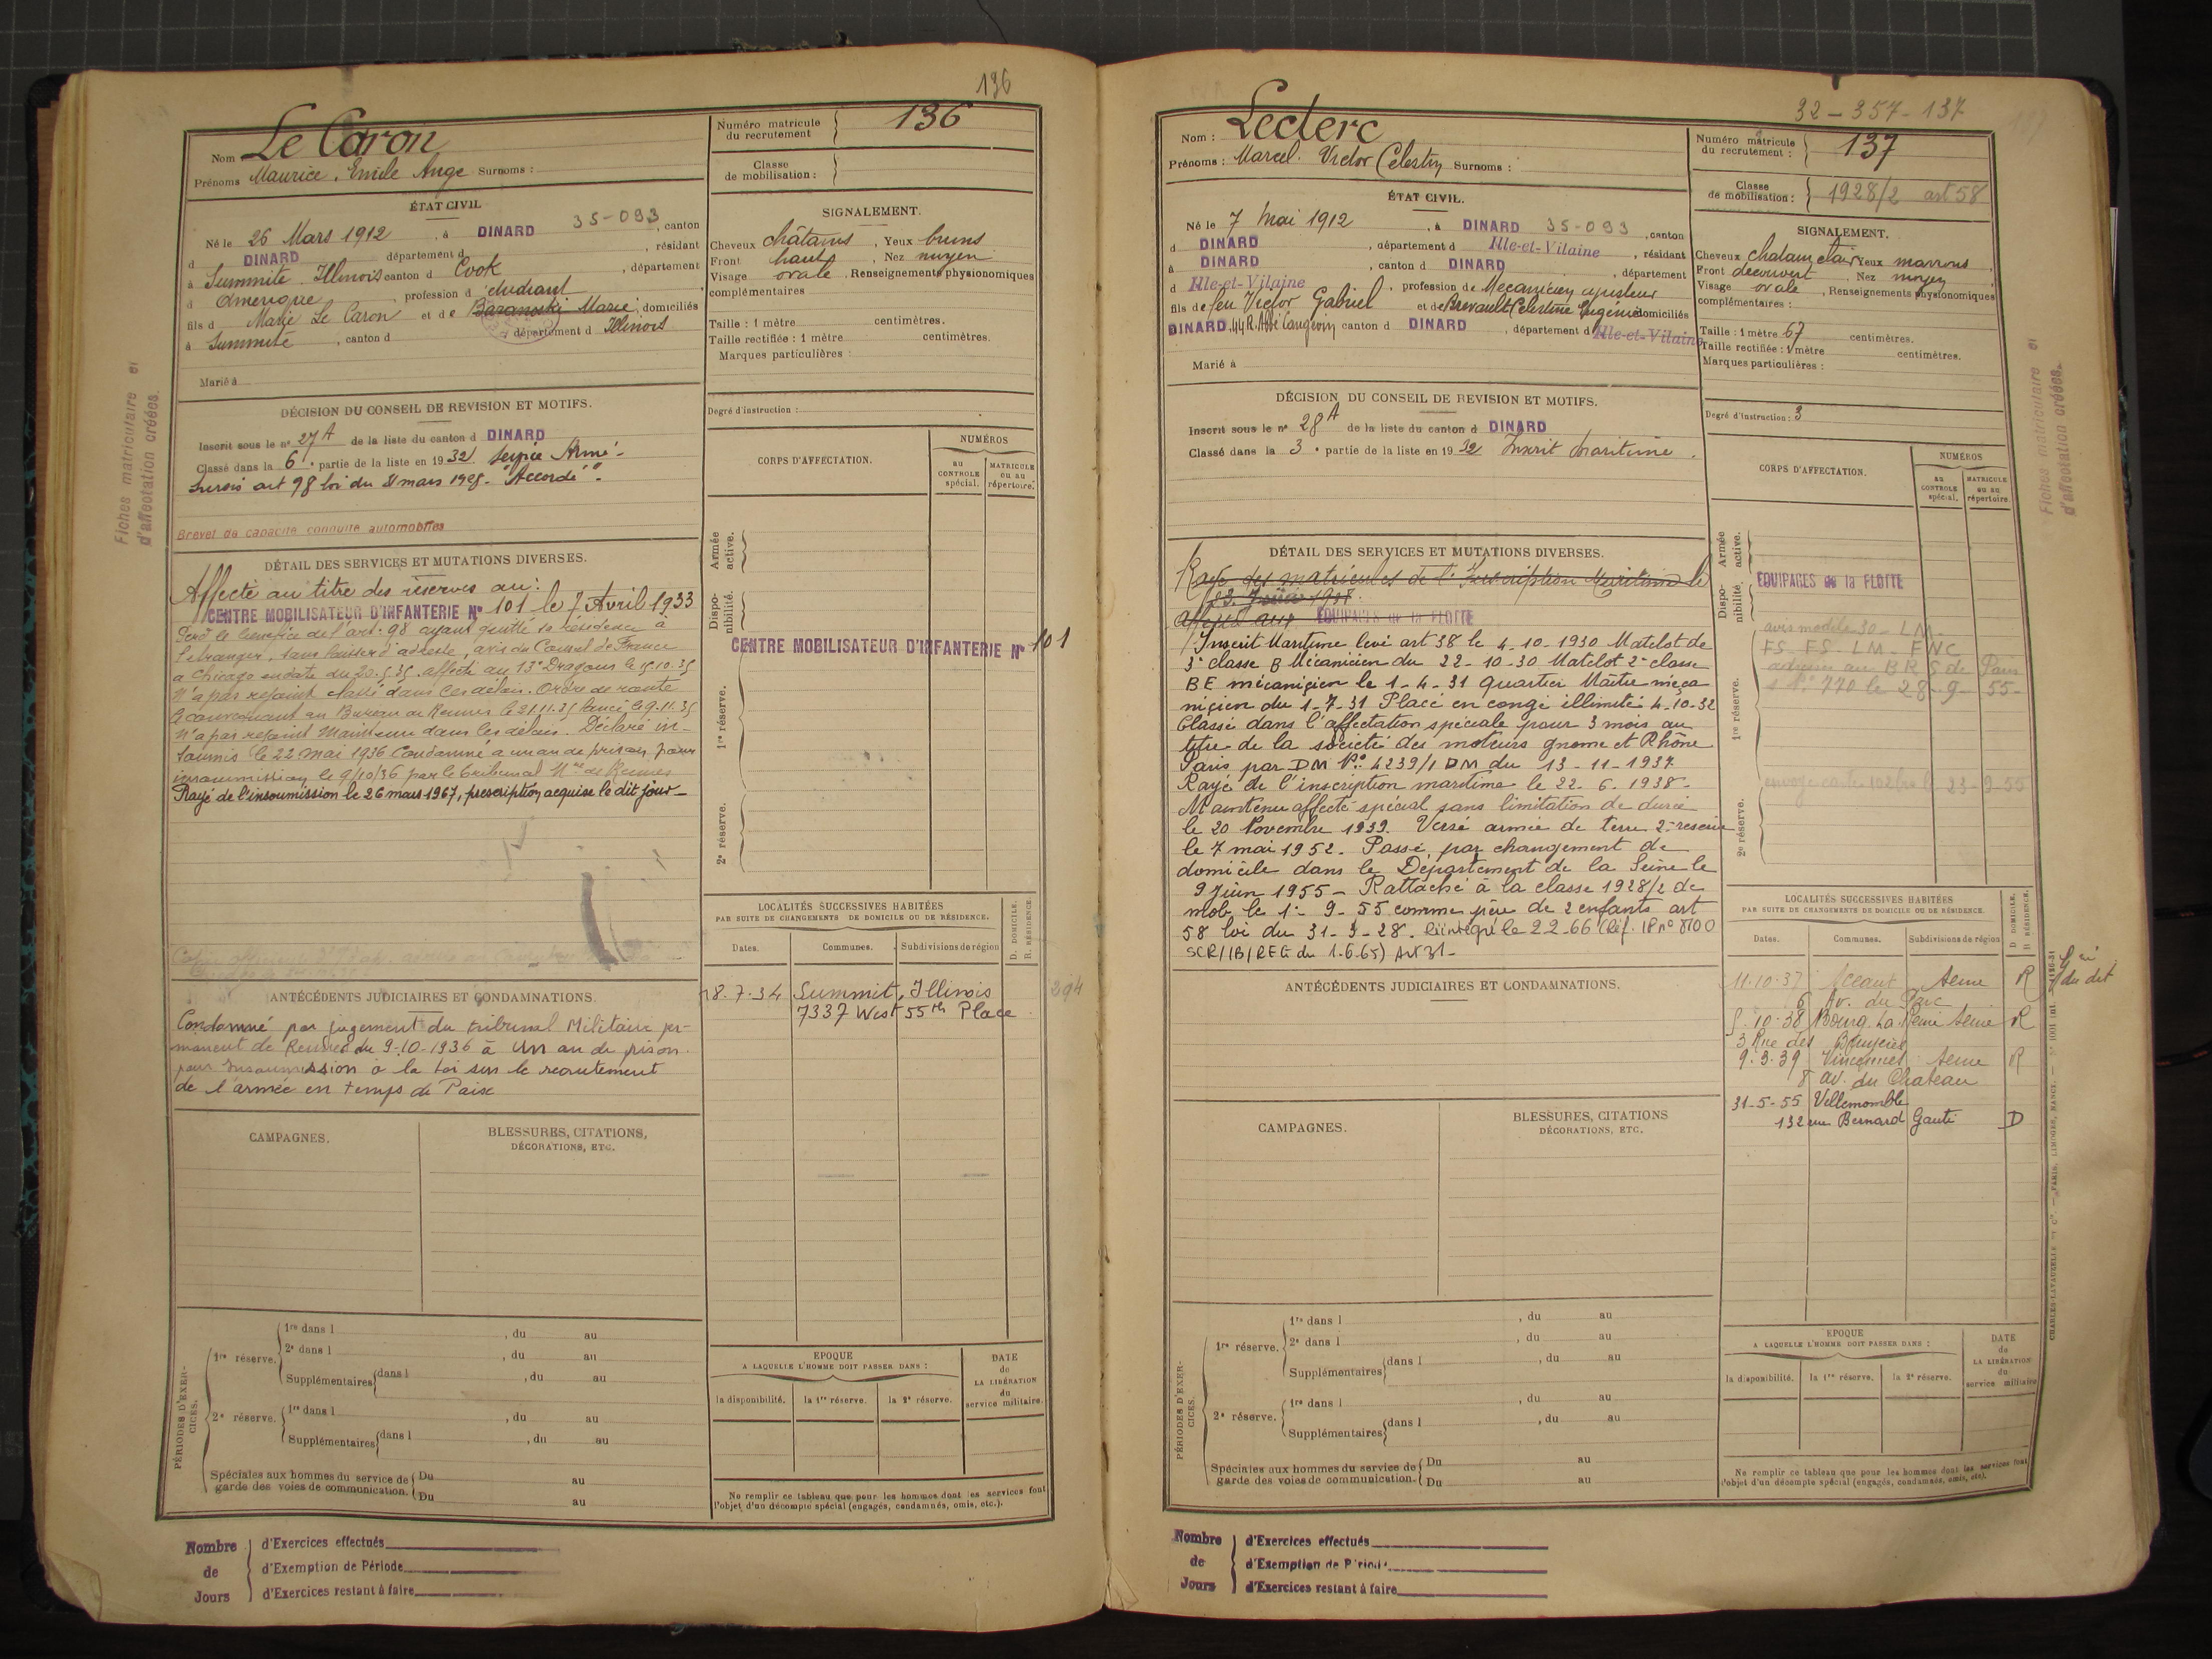 136
Nom : Le Caron
Prénoms Maurice, Emile Ange Surnoms :
Numéro matricule du recrutement 136
Classe de mobilisation :
ÉTAT CIVIL
Né le 26 Mars 1912, à DINARD 35-093, canton
d DINARD département d , résidant
à Summite Illinois canton d Cook , département
d Amérique profession d étudiant
fils d Marie Le Caron et de Baranoski Marie domiciliés
à Summite , canton d département d Illinois
Marié à
SIGNALEMENT.
Cheveux châtains , Yeux bruns
Front haut , Nez moyen
Visage ovale , Renseignements physionomiques
complémentaires
Taille : 1 mètre centimètres.
Taille rectifiée : 1 mètre centimètres.
Marques particulières :
Degré d'instruction :
DÉCISION DU CONSEIL DE REVISION ET MOTIFS.
Inscrit sous le n° 27 A de la liste du canton d DINARD
Classé dans la 6e partie de la liste en 1932. Service Armé -
Sursis art 98 loi du 31 mars 1928. "Accordé".
Brevet de capacité conduite automobiles
Fiches matriculaire et
d'affectation créées.
DÉTAIL DES SERVICES ET MUTATIONS DIVERSES.
Affecté au titre des réserves au :
CENTRE MOBILISATEUR D'INFANTERIE N° 101 le 7 Avril 1933
Perd le bénéfice de l'art. 98 ayant quitté sa résidence à
l'étranger, sans laisser d'adresse, avis du Consul de France
à Chicago en date du 20.5.35 affecté au 13e Dragons le 15.10.35
N'a pas rejoint dans les délais. Ordre de route
le convoquant au Bureau de Rennes le 21.11.35 lancé le 9.11.35
N'a pas rejoint maintenu dans les délais. Déclaré in-
soumis le 22 mai 1936 Condamné à un an de prison pour
insoumission le 9/10/36 par le tribunal Mre de Rennes
Rayé de l'insoumission le 26 mars 1967, prescription acquise le dit jour -
CORPS D'AFFECTATION.
NUMÉROS
au CONTROLE spécial.
MATRICULE ou au répertoire.
Armée active.
Disponibilité.
CENTRE MOBILISATEUR D'INFANTERIE N° 101
1re réserve.
2e réserve.
LOCALITÉS SUCCESSIVES HABITÉES
PAR SUITE DE CHANGEMENTS DE DOMICILE OU DE RÉSIDENCE.
D. DOMICILE. R. RÉSIDENCE.
Dates. Communes. Subdivisions de région
18.7.34 Summit, Illinois 294
7337 West 55th Place
ANTÉCÉDENTS JUDICIAIRES ET CONDAMNATIONS.
Condamné par jugement du tribunal Militaire per-
manent de Rennes du 9-10-1936 à un an de prison
pour insoumission à la Loi sur le recrutement
de l'armée en temps de Paix
CAMPAGNES.
BLESSURES, CITATIONS,
DÉCORATIONS, ETC.
PÉRIODES D'EXERCICES.
1re réserve. 1re dans l , du au
2e dans l , du au
Supplémentaires dans l , du au
2e réserve. 1re dans l , du au
Supplémentaires dans l , du au
Spéciales aux hommes du service de garde des voies de communication. Du au
Du au
EPOQUE
A LAQUELLE L'HOMME DOIT PASSER DANS :
la disponibilité. la 1re réserve. la 2e réserve.
DATE de LA LIBÉRATION du service militaire.
Ne remplir ce tableau que pour les hommes dont les services font
l'objet d'un décompte spécial (engagés, condamnés, omis, etc.).
Nombre de Jours
d'Exercices effectués
d'Exemption de Période
d'Exercices restant à faire
32 - 357 - 137
Nom : Leclerc
Prénoms : Marcel. Victor Célestin Surnoms :
Numéro matricule du recrutement : 137
Classe de mobilisation : 1928/2 art 58
ÉTAT CIVIL.
Né le 7 Mai 1912 , à DINARD 35-093 , canton
d DINARD , département d Ille-et-Vilaine , résidant
à DINARD , canton d DINARD , département
d Ille-et-Vilaine , profession de Mécanicien ajusteur
fils de feu Victor Gabriel et de Brevault Celestine Eugénie domiciliés
DINARD. 44 R. Abbé Langevin canton d DINARD , département d Ille-et-Vilaine
Marié à
SIGNALEMENT.
Cheveux chatain clair Yeux marrons
Front découvert , Nez moyen
Visage ovale , Renseignements physionomiques
complémentaires :
Taille : 1 mètre 67 centimètres.
Taille rectifiée : 1 mètre centimètres.
Marques particulières :
Degré d'instruction : 3
DÉCISION DU CONSEIL DE REVISION ET MOTIFS.
Inscrit sous le n° 28 A de la liste du canton d DINARD
Classé dans la 3e partie de la liste en 1932 Inscrit Maritime.
DÉTAIL DES SERVICES ET MUTATIONS DIVERSES.
Rayé des matricules de l'Inscription Maritime le
23 Juin 1938.
Affecté aux EQUIPAGES de la FLOTTE
Inscrit Maritime levé art 38 le 4-10-1930 Matelot de
3e classe B Mécanicien du 22-10-30 Matelot 2e classe
BE mécanicien le 1-4-31 Quartier Maitre méca
nicien du 1-7-31 Placé en congé illimité 4-10-32
Classé dans l'affectation spéciale pour 3 mois au
titre de la société des moteurs gnome et Rhône
Paris par DM N° 4239/1 DM du 13-11-1937
Rayé de l'inscription maritime le 22-6-1938-
Maintenu affecté spécial sans limitation de durée
le 20 Novembre 1939. Versé armée de terre 2e réserve
le 7 mai 1952. Passé par changement de
domicile dans le Département de la Seine le
9 Juin 1955 - Rattaché à la classe 1928/2 de
mob. le 1-9-55 comme père de 2 enfants art
58 loi du 31-3-28. Réintégré le 22-66 (Réf. IP n° 8700
SCR/IB/REG du 1-6-65) Art 31-
CORPS D'AFFECTATION.
NUMÉROS
au CONTROLE spécial.
MATRICULE ou au répertoire
Armée active.
Disponibilité.
EQUIPAGES de la FLOTTE
1re réserve.
avis modèle 30 - LM -
FS - FS - LM - FNC
adressés au BRS de Paris
s N° 770 le 28-9-55-
2e réserve.
envoyé carte 102 le 23-9-55
Fiches matriculaire et
d'affectation créées.
LOCALITÉS SUCCESSIVES HABITÉES
PAR SUITE DE CHANGEMENTS DE DOMICILE OU DE RÉSIDENCE.
D DOMICILE. R RÉSIDENCE.
Dates. Communes. Subdivisions de région
11.10.37 Sceaux Seine R
6 Av. du Parc
5.10.38 Bourg-La-Reine Seine R
3 Rue des Bruyères
9.3.39 Vincennes Seine R
8 av. du Chateau
31-5-55 Villemomble
132 rue Bernard Gante D
ANTÉCÉDENTS JUDICIAIRES ET CONDAMNATIONS.
CAMPAGNES.
BLESSURES, CITATIONS
DÉCORATIONS, ETC.
PÉRIODES D'EXERCICES.
1re réserve. 1re dans l , du au
2e dans l , du au
Supplémentaires dans l , du au
2e réserve. 1re dans l , du au
Supplémentaires dans l , du au
Spéciales aux hommes du service de garde des voies de communication. Du au
Du au
EPOQUE
A LAQUELLE L'HOMME DOIT PASSER DANS :
la disponibilité. la 1re réserve. la 2e réserve.
DATE de LA LIBÉRATION du service militaire
Ne remplir ce tableau que pour les hommes dont les services font
l'objet d'un décompte spécial (engagés, condamnés, omis, etc.).
CHARLES-LAVAUZELLE ET Cie. — PARIS, LIMOGES, NANCY.
Nombre de Jours
d'Exercices effectués
d'Exemption de Période
d'Exercices restant à faire